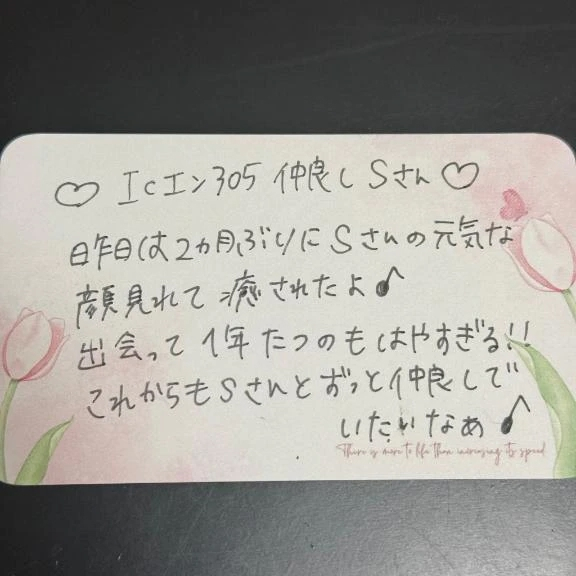 ♡ Icエン305 仲良し Sさん ♡
昨日は2カ月ぶりにSさんの元気な
顔見れて癒されたよ♪
出会って1年たつのもはやすぎる!!
これからもSさんとずっと仲良しで
いたいなぁ♪
There is more to life than increasing its speed